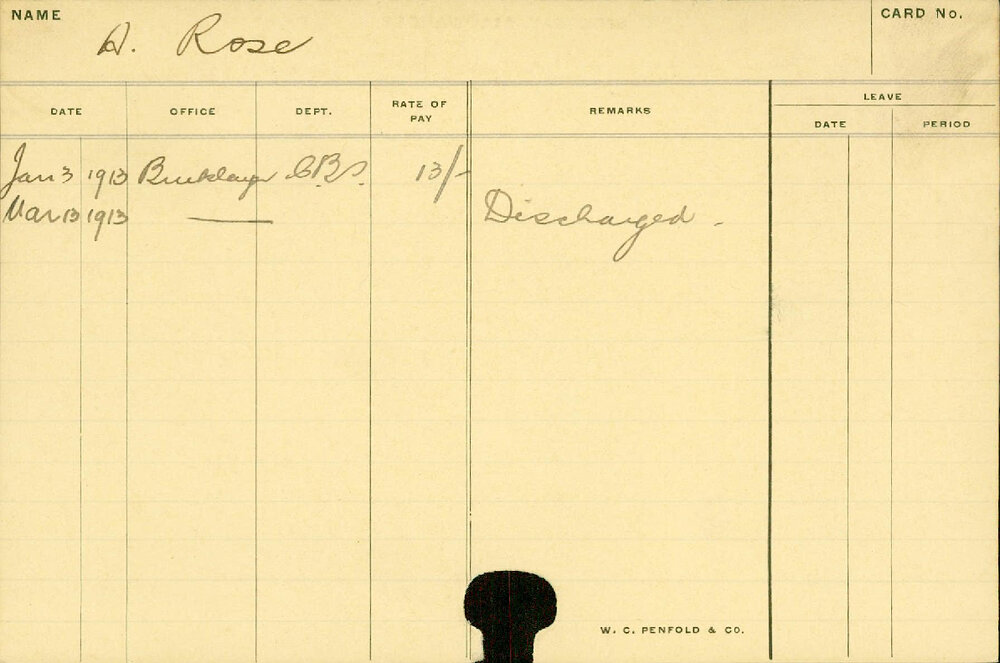 NAME
A. Rose
CARD No.
DATE OFFICE DEPT. RATE OF PAY REMARKS LEAVE
DATE PERIOD
Jan 3 1913 Bricklayer C.B.S. 13/-
Mar 13 1913 — Discharged.
W. C. PENFOLD & CO.